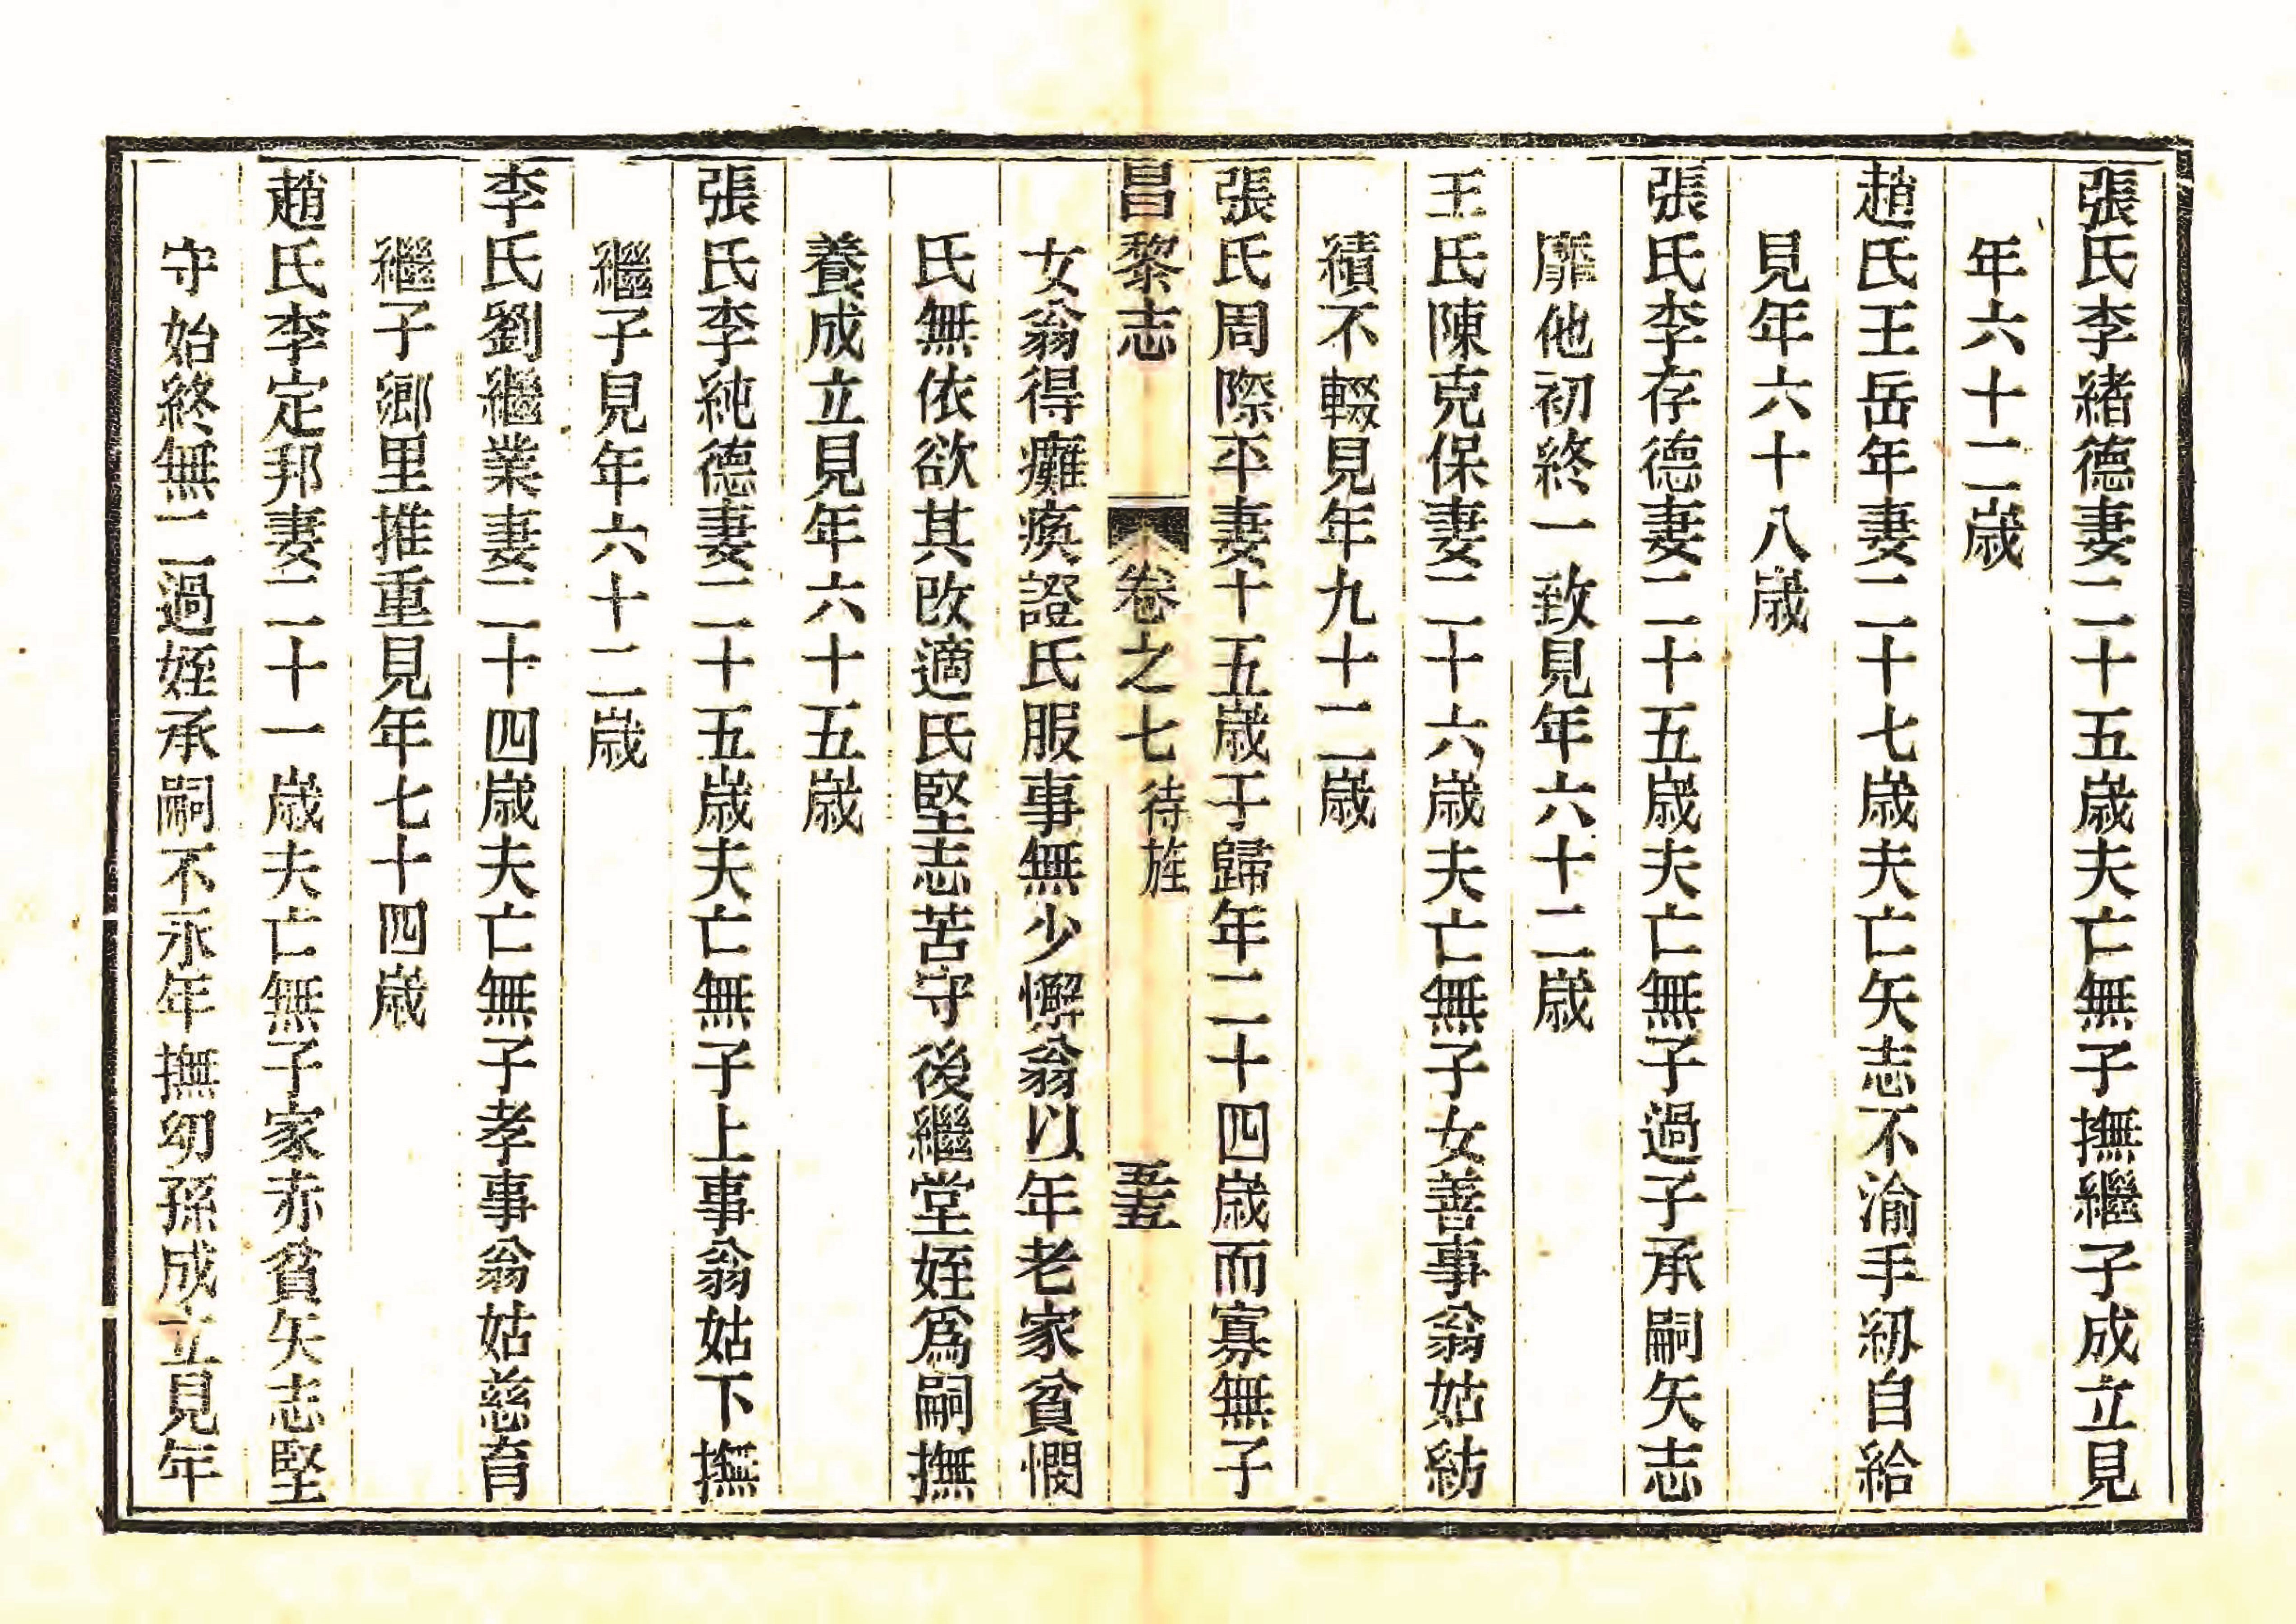 張氏李緒德妻二十五歲夫亡無子撫繼子成立見
年六十二歲
趙氏王岳年妻二十七歲夫亡矢志不渝手紉自給
見年六十八歲
張氏李存德妻二十五歲夫亡無子過子承嗣矢志
靡他初終一致見年六十二歲
王氏陳克保妻二十六歲夫亡無子女善事翁姑紡
績不輟見年九十二歲
張氏周際平妻十五歲于歸年二十四歲而寡無子
昌黎志 卷之七 待旌 五十五
女翁得癱瘓證氏服事無少懈翁以年老家貧憫
氏無依欲其改適氏堅志苦守後繼堂姪爲嗣撫
養成立見年六十五歲
張氏李純德妻二十五歲夫亡無子上事翁姑下撫
繼子見年六十二歲
李氏劉繼業妻二十四歲夫亡無子孝事翁姑慈育
繼子鄉里推重見年七十四歲
趙氏李定邦妻二十一歲夫亡無子家赤貧矢志堅
守始終無二過姪承嗣不永年撫幼孫成立見年